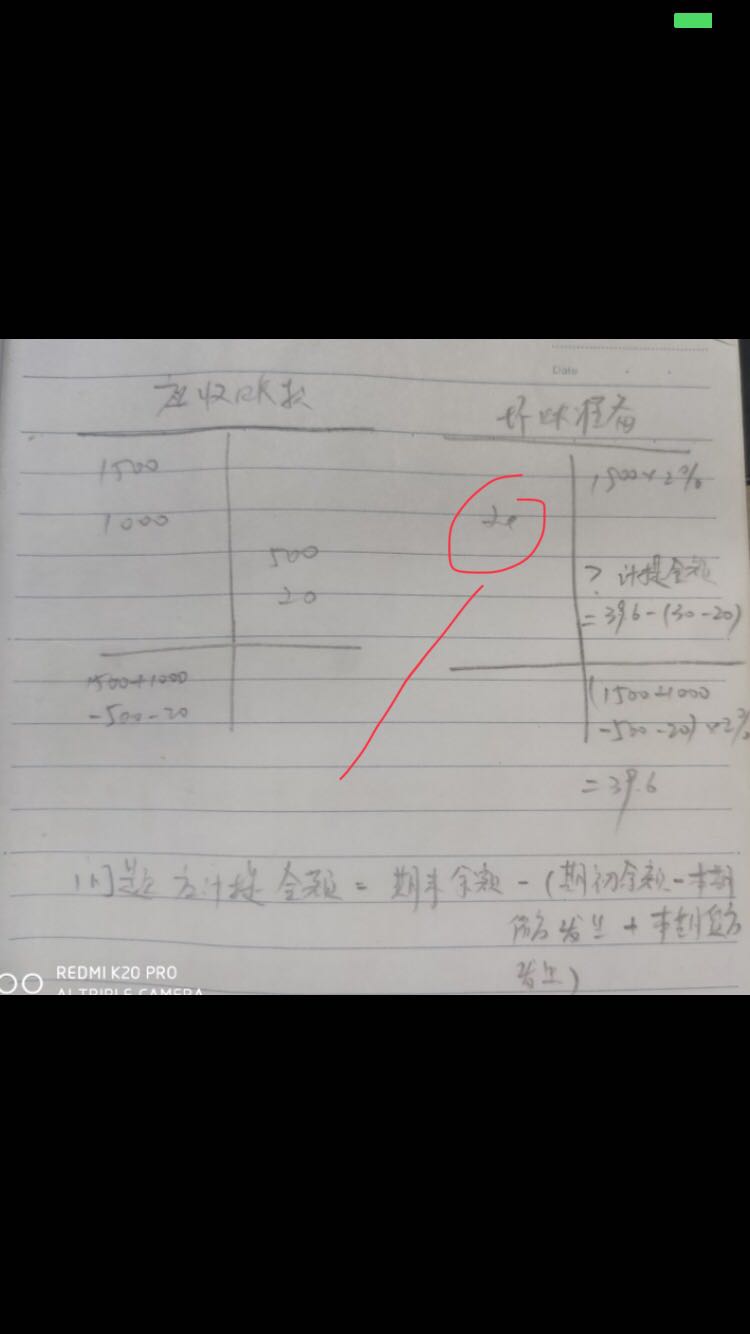 Date
应收账款
坏账准备
1500
1500×2%
1000
20
500
? 计提金额
20
=39.6-(30-20)
1500+1000
-500-20
(1500+1000
-500-20)×2%
=39.6
计提金额=期末余额-(期初余额-本期
借方发生+本期贷方
发生)
REDMI K20 PRO
AI TRIPLE CAMERA